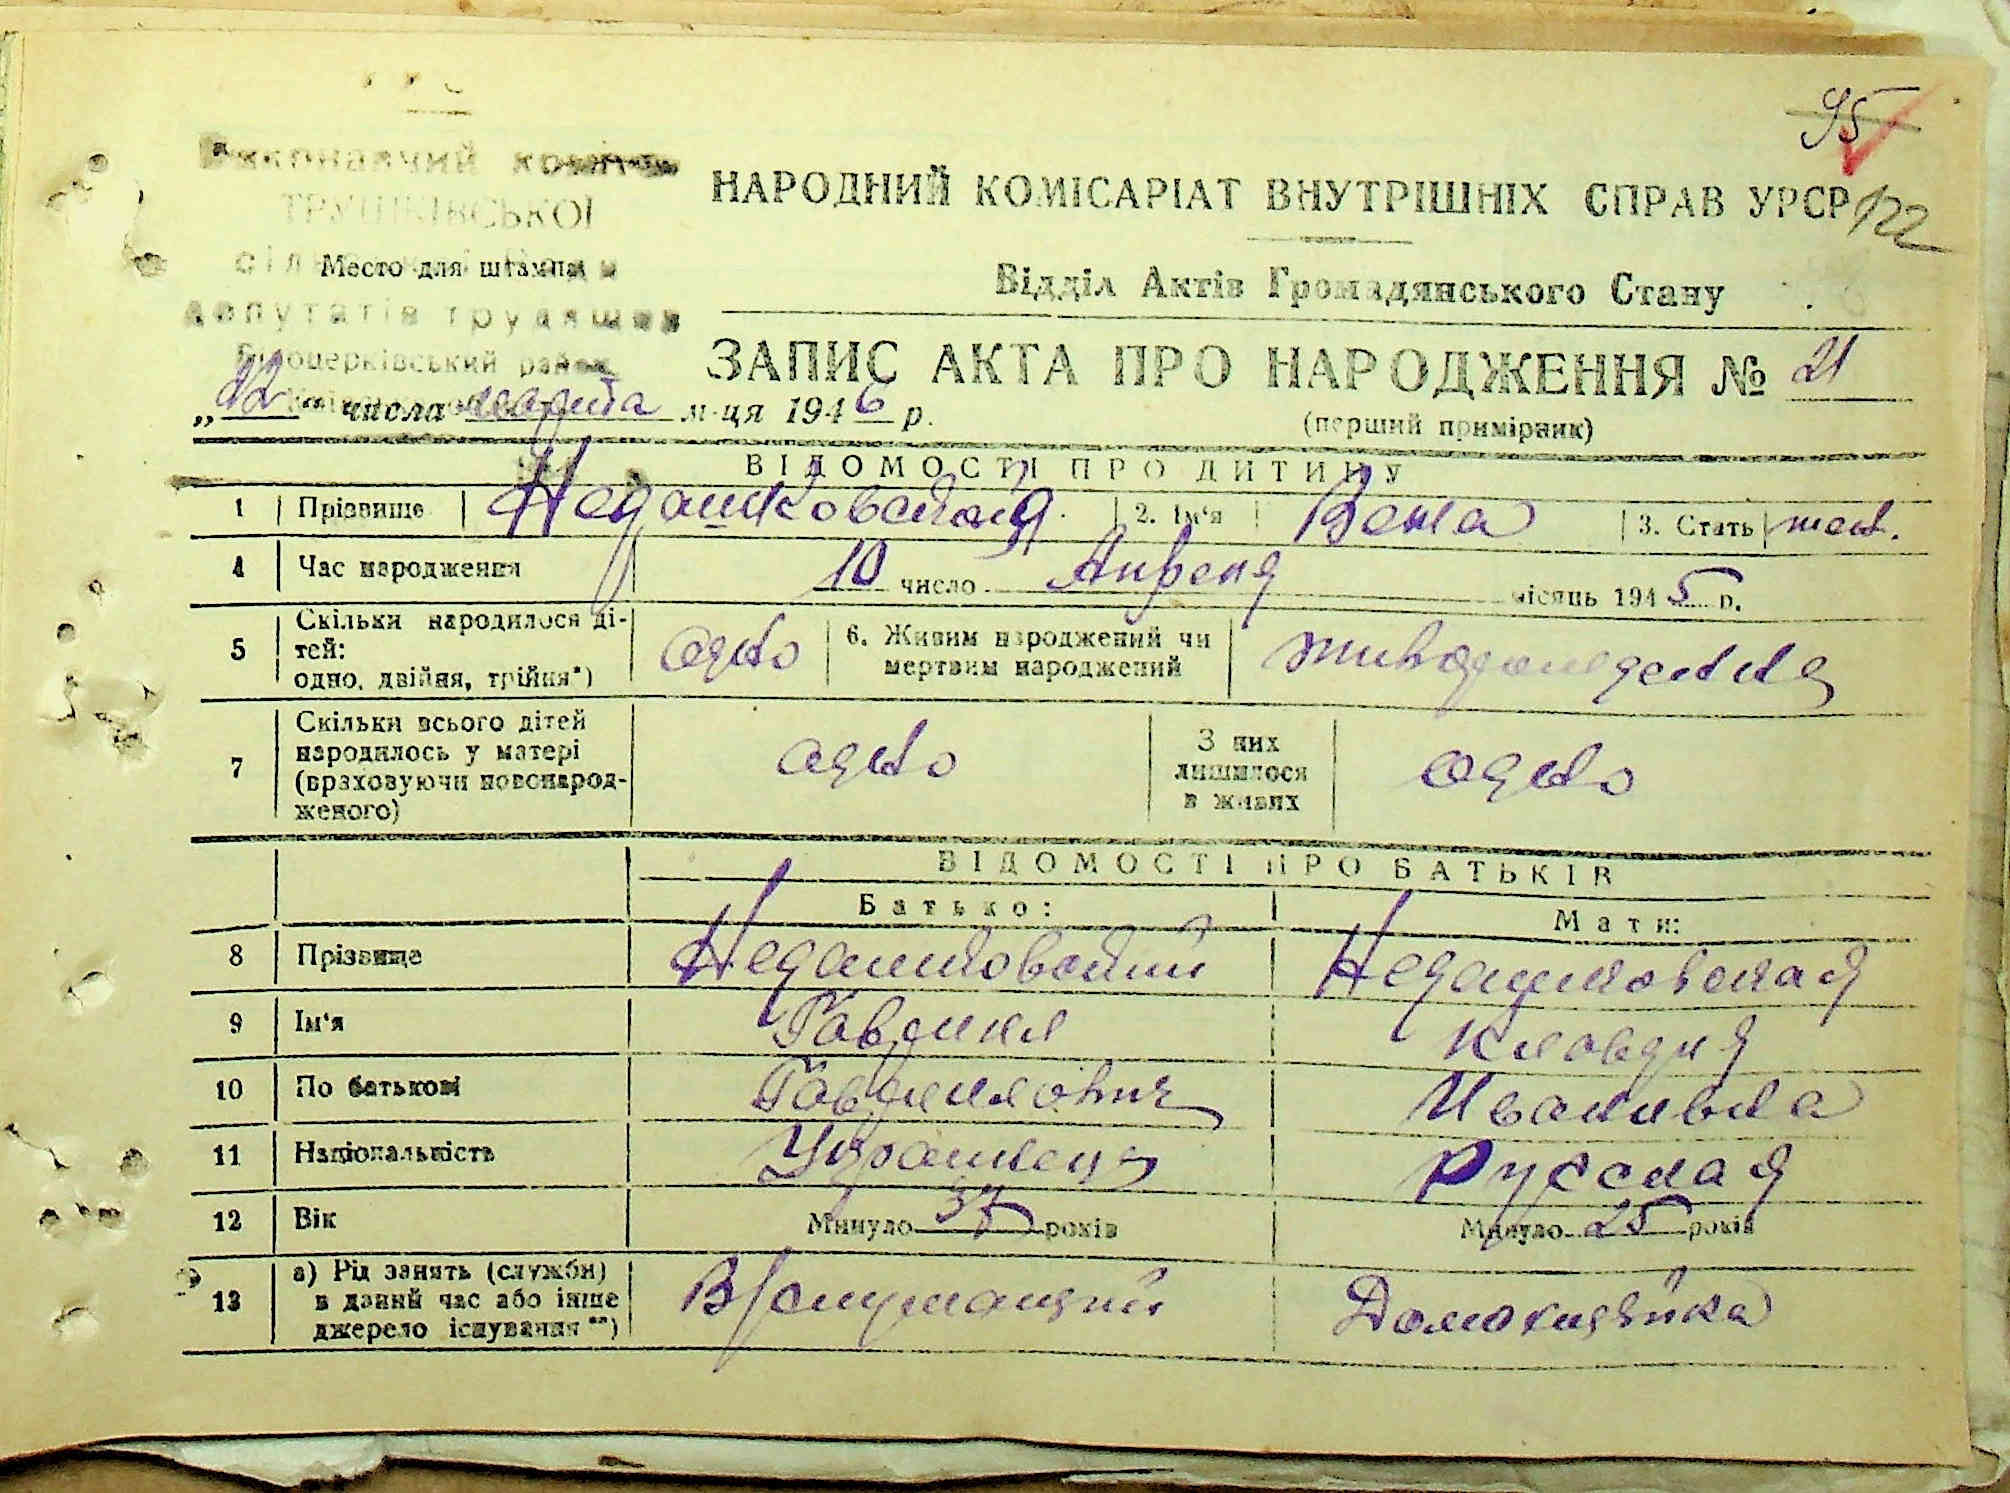 95
122
Виконавчий коміт
ТРУШКІВСЬКОЇ
сільської Ради
депутатів трудящих
Білоцерківський район
Место для штампа
НАРОДНИЙ КОМІСАРІАТ ВНУТРІШНІХ СПРАВ УРСР
Відділ Актів Громадянського Стану
ЗАПИС АКТА ПРО НАРОДЖЕННЯ № 21
(перший примірник)
„12“ числа марта м-ця 1946 р.
ВІДОМОСТІ ПРО ДИТИНУ
1 Прізвище Недашковская 2. Ім'я 3. Стать жен.
4 Час народження 10 число Апреля місяць 1945 р.
5 Скільки народилося дітей: одно, двійня, трійня*) одно 6. Живим народжений чи мертвим народжений живорожденная
7 Скільки всього дітей народилось у матері (враховуючи новонародженого) одно З них лишилося в живих одно
ВІДОМОСТІ ПРО БАТЬКІВ
Батько: Мати:
8 Прізвище Недашковский Недашковская
9 Ім'я Гаврил Клавдия
10 По батькові Гаврилович Ивановна
11 Національність Украинец Русская
12 Вік Минуло 37 років Минуло 25 років
13 а) Рід занять (служби) в даний час або інше джерело існування**) Домохазяйка